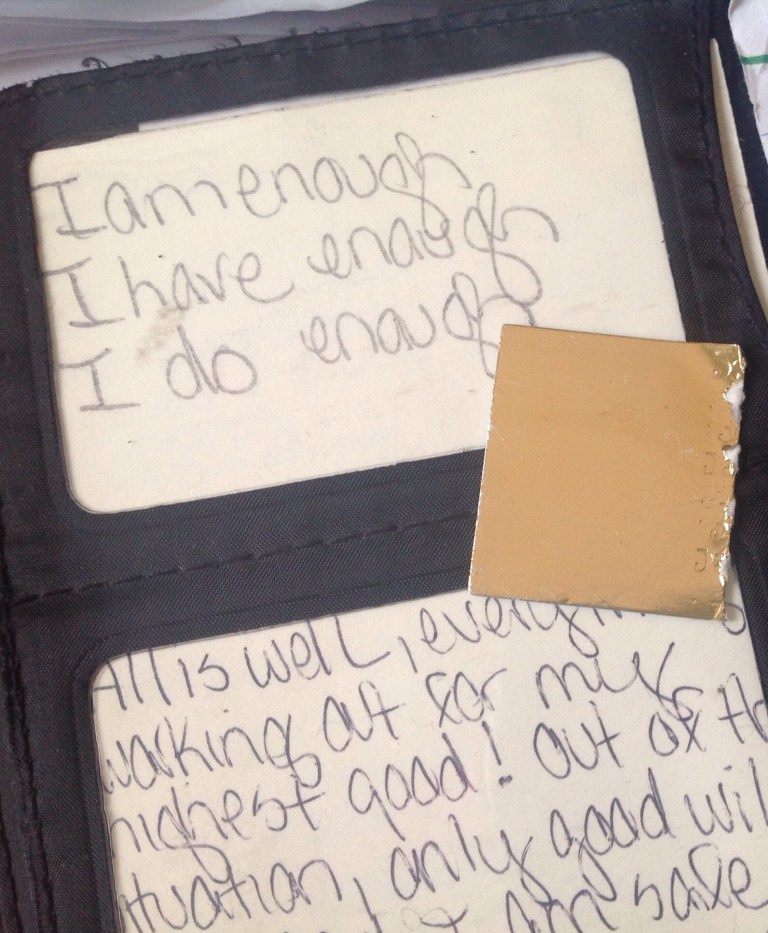 I am enough
I have enough
I do enough
All is well, everything
working out for my
highest good! out of th
ituation, only good wil
I am safe